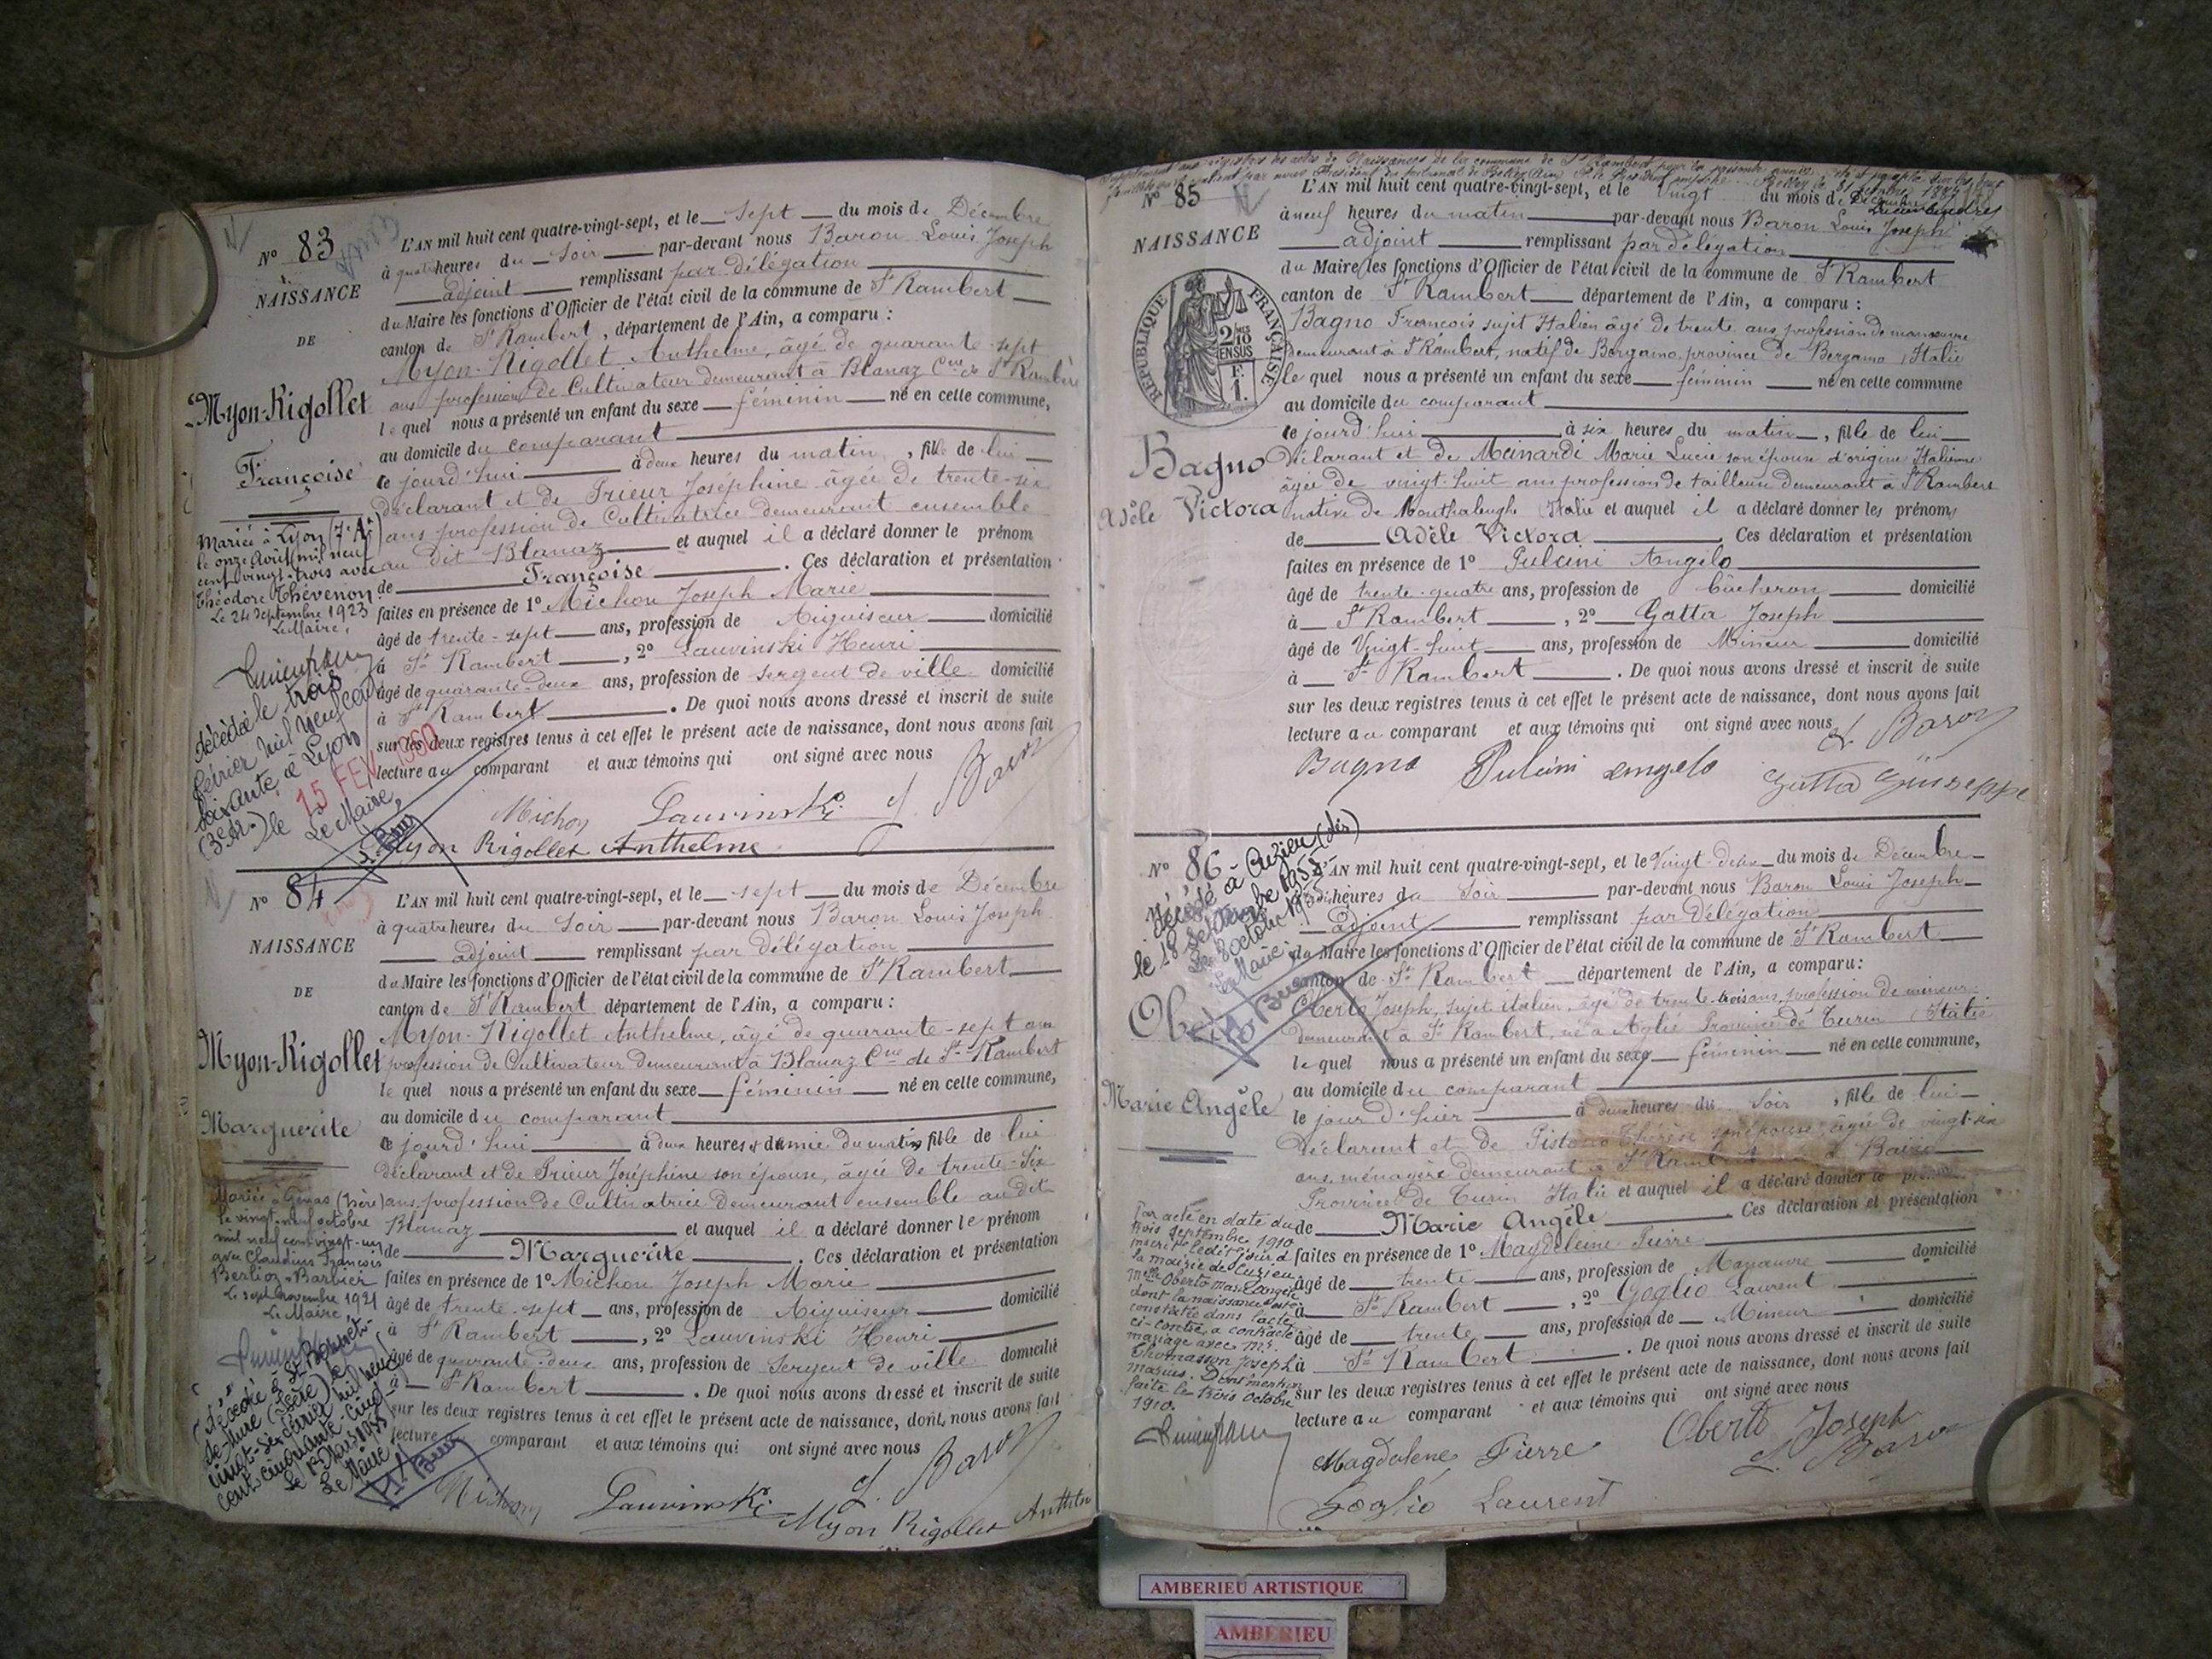 N° 83
NAISSANCE
DE
Myon-Rigollet
Françoise
Mariée à Lyon (7e Ar)
le onze Août mil neuf
cent vingt-trois avec
Théodore Thévenon
Le 24 Septembre 1923
Le Maire,
décédée le trois
février mil neuf cent
soixante à Lyon
(3e Ar.) le 15 FEV 1960
Le Maire,
L'AN mil huit cent quatre-vingt-sept, et le sept du mois de Décembre
à quatre heures du soir par-devant nous Baron Louis Joseph
adjoint remplissant par délégation
du Maire les fonctions d'Officier de l'état civil de la commune de St Rambert
canton de St Rambert, département de l'Ain, a comparu :
Myon-Rigollet Anthelme, âgé de quarante-sept
ans profession de Cultivateur demeurant à Blanaz Cne de St Rambert
lequel nous a présenté un enfant du sexe féminin né en cette commune,
au domicile du comparant
ce jourd'hui à deux heures du matin, fille de lui
déclarant et de Prieur Joséphine âgée de trente-six
ans profession de Cultivatrice demeurant ensemble
au dit Blanaz et auquel il a déclaré donner le prénom
de Françoise. Ces déclaration et présentation
faites en présence de 1° Michon Joseph Marie
âgé de trente-sept ans, profession de Aiguiseur domicilié
à St Rambert, 2° Lauvinski Henri
âgé de quarante-deux ans, profession de sergent de ville domicilié
à St Rambert. De quoi nous avons dressé et inscrit de suite
sur les deux registres tenus à cet effet le présent acte de naissance, dont nous avons fait
lecture au comparant et aux témoins qui ont signé avec nous
Michon Lauvinski L. Baron
Myon Rigollet Anthelme
N° 84
NAISSANCE
DE
Myon-Rigollet
Marguerite
Mariée à Genas (Isère)
le vingt-neuf octobre
mil neuf cent vingt-un
avec Claudius François
Berlioz-Barbier
Le sept Novembre 1921
Le Maire
Décédée à St Bonnet-
de-Mure (Isère) le
vingt-six février mil neuf
cent cinquante-cinq
Le Maire
L'AN mil huit cent quatre-vingt-sept, et le sept du mois de Décembre
à quatre heures du soir par-devant nous Baron Louis Joseph
adjoint remplissant par délégation
du Maire les fonctions d'Officier de l'état civil de la commune de St Rambert
canton de St Rambert département de l'Ain, a comparu :
Myon-Rigollet Anthelme, âgé de quarante-sept ans
profession de Cultivateur demeurant à Blanaz Cne de St Rambert
lequel nous a présenté un enfant du sexe féminin né en cette commune,
au domicile du comparant
ce jourd'hui à deux heures et demie du matin fille de lui
déclarant et de Prieur Joséphine son épouse, âgée de trente-six
ans, profession de Cultivatrice demeurant ensemble au dit
Blanaz et auquel il a déclaré donner le prénom
de Marguerite. Ces déclaration et présentation
faites en présence de 1° Michon Joseph Marie
âgé de trente-sept ans, profession de Aiguiseur domicilié
à St Rambert, 2° Lauvinski Henri
âgé de quarante-deux ans, profession de Sergent de ville domicilié
à St Rambert. De quoi nous avons dressé et inscrit de suite
sur les deux registres tenus à cet effet le présent acte de naissance, dont nous avons fait
lecture au comparant et aux témoins qui ont signé avec nous
Michon Lauvinski L. Baron
Myon Rigollet Anthelme
N° 85
NAISSANCE
RÉPUBLIQUE FRANÇAISE
2/10
EN SUS
F.
1.
Bagno
Adèle Victora
L'AN mil huit cent quatre-vingt-sept, et le vingt du mois de Décembre
à neuf heures du matin par-devant nous Baron Louis Joseph
adjoint remplissant par délégation
du Maire les fonctions d'Officier de l'état civil de la commune de St Rambert
canton de St Rambert département de l'Ain, a comparu :
Bagno Francois sujet Italien âgé de trente ans profession de manoeuvre
demeurant à St Rambert, natif de Bergamo, province de Bergamo, Italie
lequel nous a présenté un enfant du sexe féminin né en cette commune
au domicile du comparant
ce jourd'hui à six heures du matin, fille de lui
déclarant et de Mainardi Marie Lucie son épouse d'origine Italienne
âgée de vingt-huit ans profession de tailleuse demeurant à St Rambert
native de Italie et auquel il a déclaré donner les prénoms
de Adèle Victora Ces déclaration et présentation
faites en présence de 1° Pulcini Angelo
âgé de trente-quatre ans, profession de bûcheron domicilié
à St Rambert, 2° Gatta Joseph
âgé de Vingt-huit ans, profession de Mineur domicilié
à St Rambert. De quoi nous avons dressé et inscrit de suite
sur les deux registres tenus à cet effet le présent acte de naissance, dont nous avons fait
lecture au comparant et aux témoins qui ont signé avec nous
L. Baron
Bagno Pulcini Angelo Gatta Giuseppe
N° 86
Décédé à Cuzieu (Ain)
le 18 Septembre 1955
Le Maire
Oberto
Marie Angèle
Par acte en date du
trois Septembre 1910
inscrit le dit jour à
la mairie de Cuzieu,
Melle Oberto Marie Angèle
dont la naissance est
constatée dans l'acte
ci-contre, a contracté
mariage avec Mr.
Thomasson Joseph
Marius. Dont mention
faite le trois Octobre
1910.
L'AN mil huit cent quatre-vingt-sept, et le Vingt-deux du mois de Décembre
heures du soir par-devant nous Baron Louis Joseph
adjoint remplissant par délégation
du Maire les fonctions d'Officier de l'état civil de la commune de St Rambert
canton de St Rambert département de l'Ain, a comparu :
Oberto Joseph, sujet italien, âgé de trente-trois ans, profession de mineur
demeurant à St Rambert, né à Aglié Province de Turin (Italie
lequel nous a présenté un enfant du sexe féminin né en cette commune,
au domicile du comparant
le jour d'hier à deux heures du soir, fille de lui
déclarant et de Pistono Thérèse son épouse, âgée de vingt-six
ans, ménagère demeurant à St Rambert née à Bairo
Province de Turin Italie et auquel il a déclaré donner le
de Marie Angèle Ces déclaration et présentation
faites en présence de 1° Magdeleine Pierre
âgé de trente ans, profession de Manœuvre domicilié
à St Rambert, 2° Goglio Laurent
âgé de trente ans, profession de Mineur domicilié
à St Rambert. De quoi nous avons dressé et inscrit de suite
sur les deux registres tenus à cet effet le présent acte de naissance, dont nous avons fait
lecture au comparant et aux témoins qui ont signé avec nous
Magdalene Pierre Oberto Joseph
Goglio Laurent L. Baron
AMBERIEU ARTISTIQUE
AMBERIEU